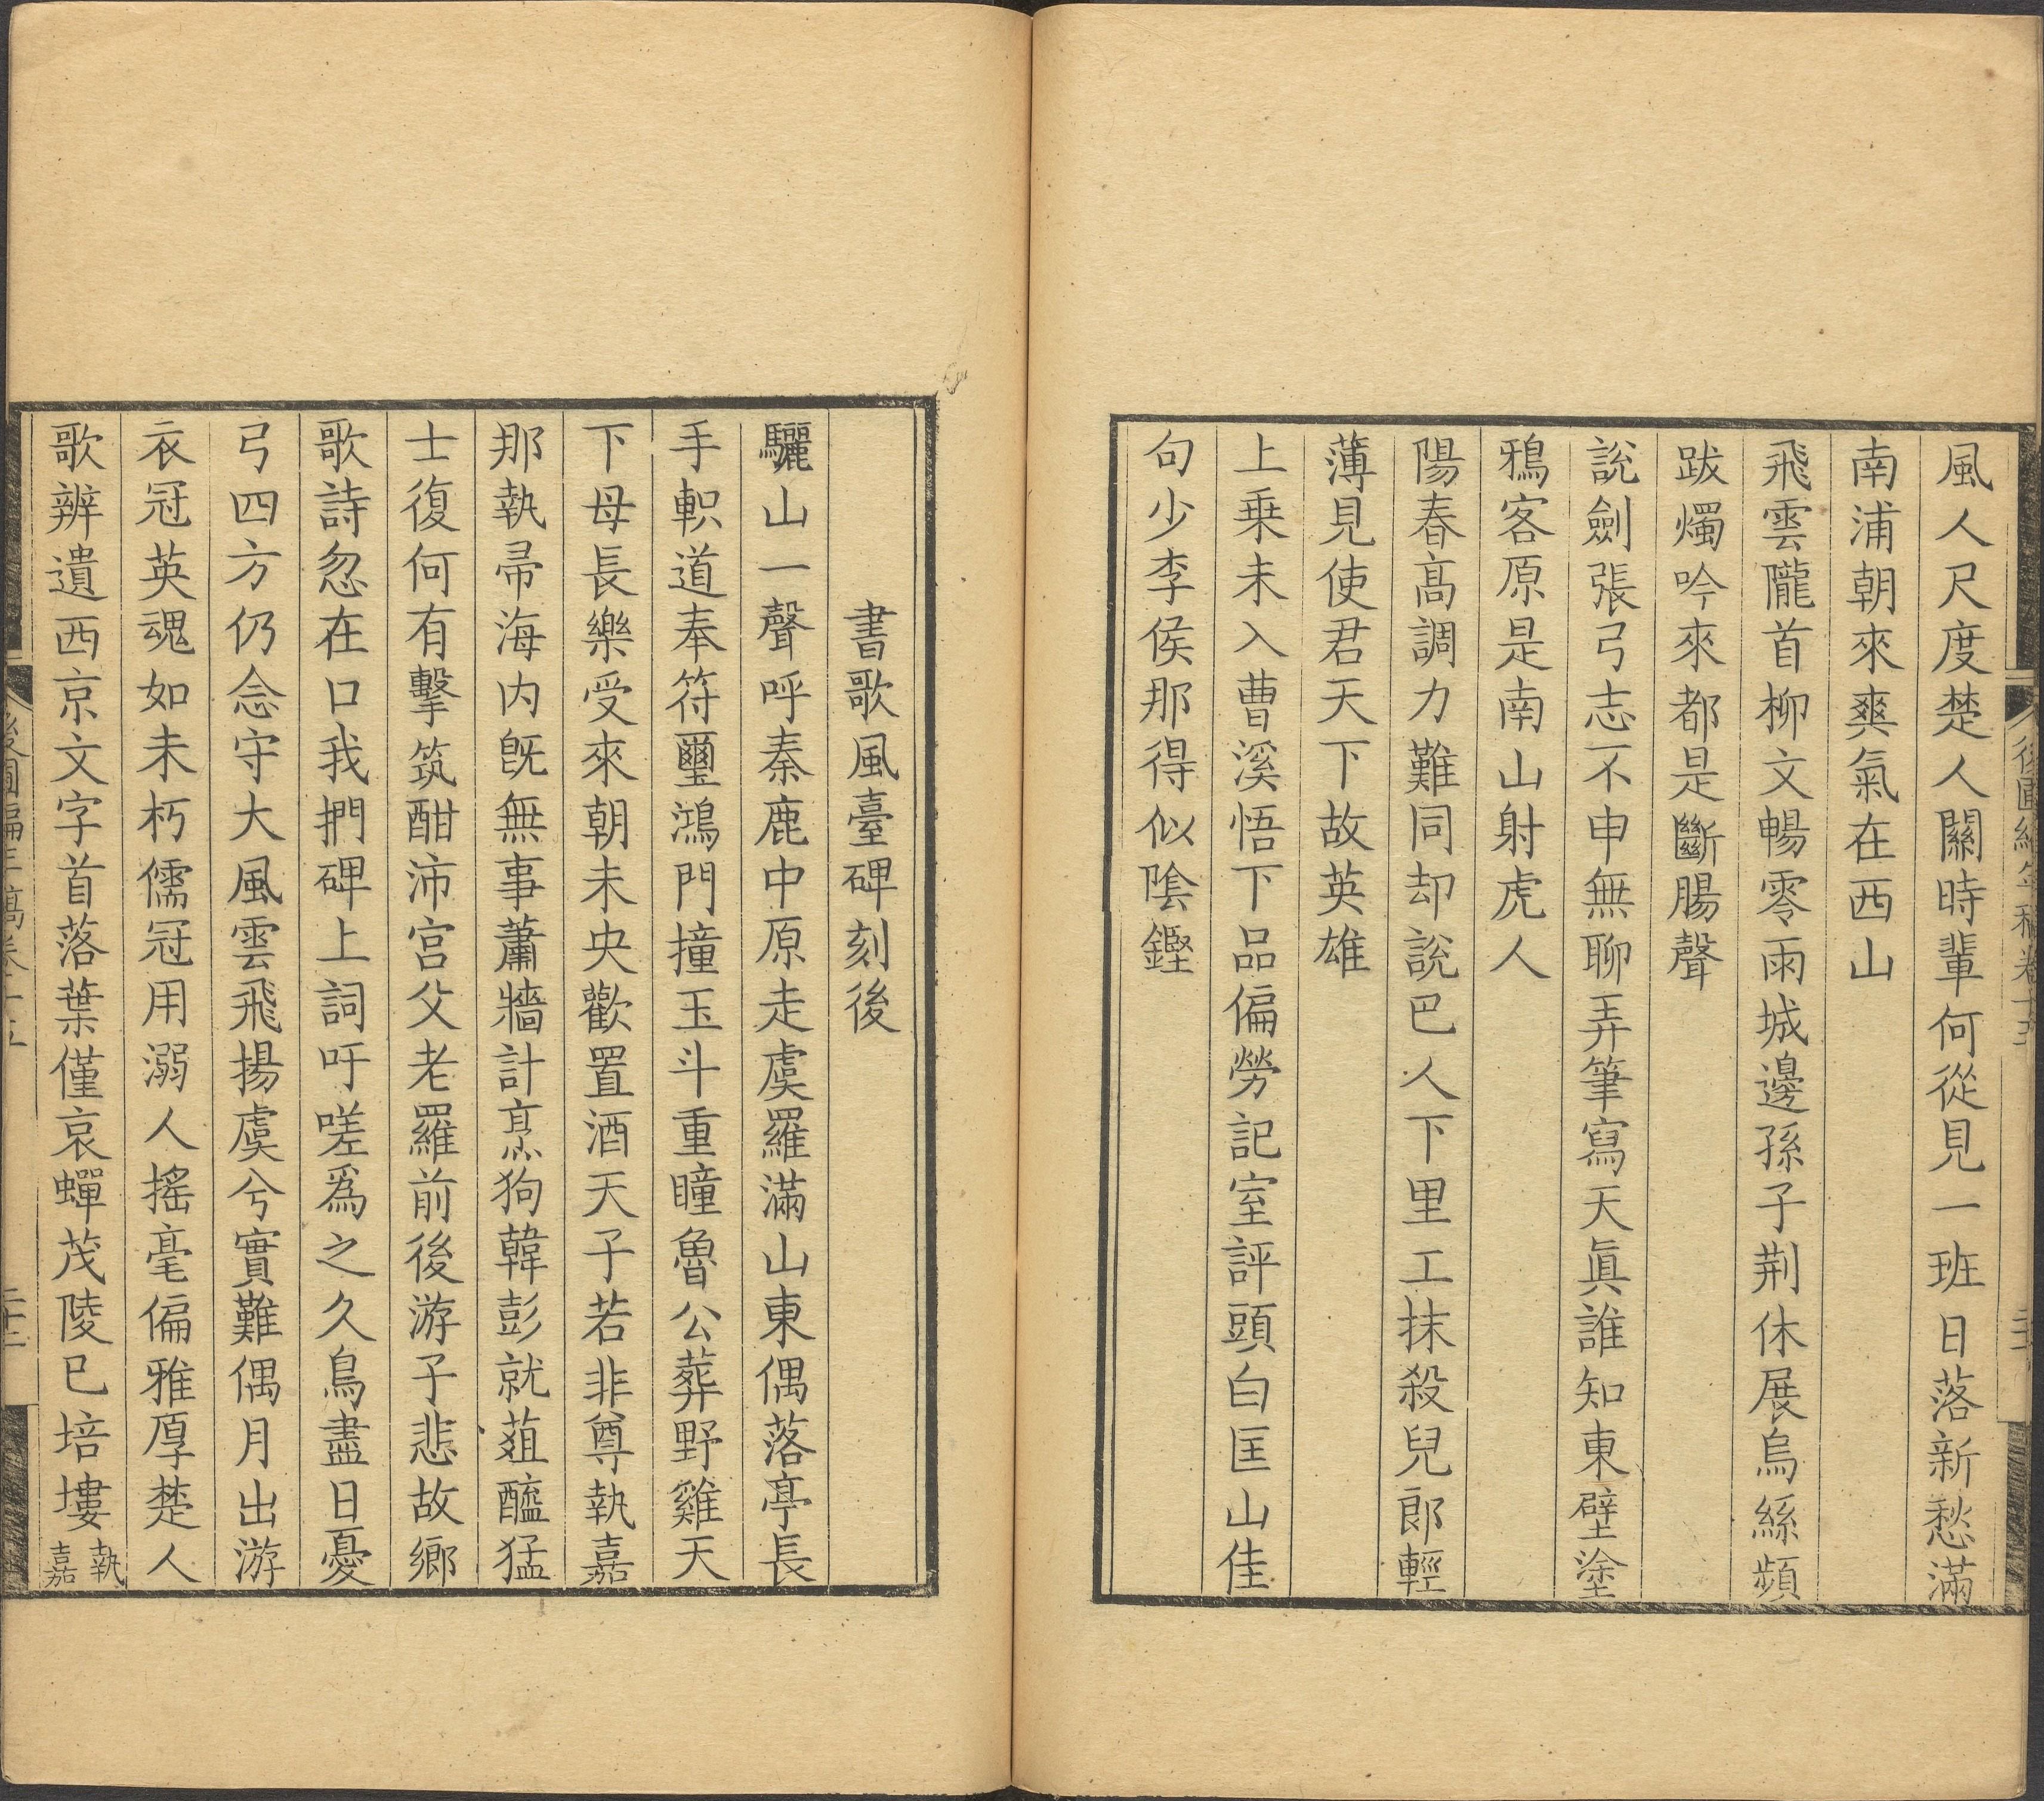 風人尺度楚人關時輩何從見一班日落新愁滿
南浦朝來爽氣在西山
飛雲隴首柳文暢零雨城邊孫子荆休展烏絲頻
跋燭吟來都是斷腸聲
說劍張弓志不申無聊弄筆寫天眞誰知東壁塗
鴉客原是南山射虎人
陽春高調力難同却說巴人下里工抹殺兒郎輕
薄見使君天下故英雄
上乗未入曹溪悟下品偏勞記室評頭白匡山佳
句少李侯那得似陰鏗
書歌風臺碑刻後
驪山一聲呼秦鹿中原走虞羅滿山東偶落亭長
手軹道奉符璽鴻門撞玉斗重瞳魯公葬野雞天
下母長樂受來朝未央歡置酒天子若非尊執嘉
那執帚海内旣無事蕭牆計烹狗韓彭就菹醢猛
士復何有擊筑酣沛宫父老羅前後游子悲故鄉
歌詩忽在口我捫碑上詞吁嗟爲之久鳥盡日憂
弓四方仍念守大風雲飛揚虞兮實難偶月出游
衣冠英魂如未朽儒冠用溺人搖毫偏雅厚楚人
歌辨遺西京文字首落葉僅哀蟬茂陵已培塿執
嘉